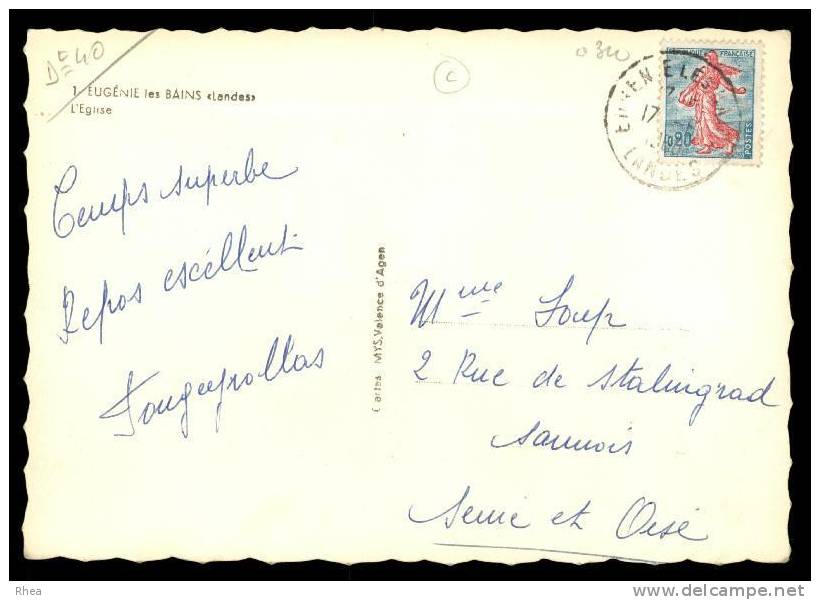 Dt 40
0310
C
1. EUGÉNIE les BAINS «Landes»
L'Eglise
REPUBLIQUE FRANÇAISE
0,20
POSTES
17
LANDES
Temps superbe
Repos excéllent
Fougeyrollas
Cartes MYS. Valence d'Agen
Mme Loup
2 Rue de Stalingrad
Sannois
Seine et Oise
Rhea
www.delcampe.net